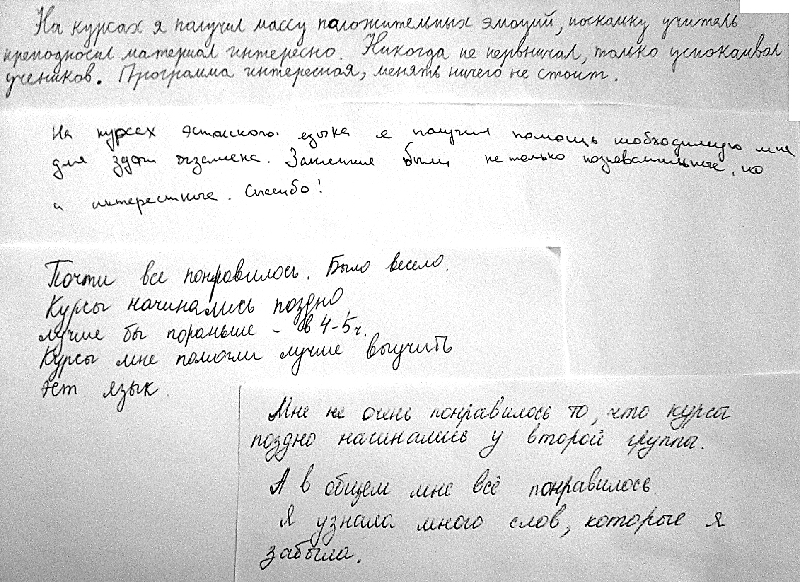 На курсах я получил массу положительных эмоций, поскольку учитель
преподносил материал интересно. Никогда не нервничал, только успокаивал
учеников. Программа интересная, менять ничего не стоит.
На курсах эстонского языка я получил помощь необходимую мне
для здачи экзамена. Занятия были не только познавательные, но
и интерестные. Спасибо!
Почти все понравилось. Было весело.
Курсы начинались поздно,
лучше бы пораньше - в 4-5ч.
Курсы мне помогли лучше выучить
эст язык.
Мне не очень понравилось то, что курсы
поздно начинались у второй группы.
А в общем мне всё понравилось
Я узнала много слов, которые я
забыла.